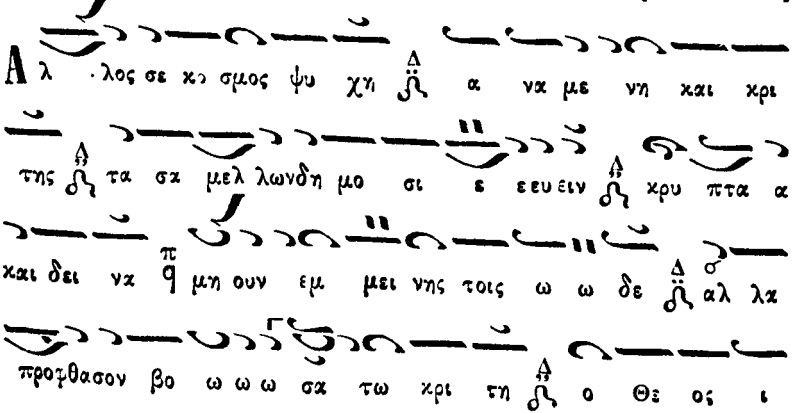 Αλ λος σε κο σμος ψυ χη Δ α να με νη και κρι
της Δ τα σα μελ λωνδη μο σι ε εευειν Δ κρυ πτα α
και δει να π q μη ουν εμ μει νης τοις ω ω δε Δ αλ λα
προφθασον βο ω ω ω σα τω κρι τη Δ ο Θε ος ι